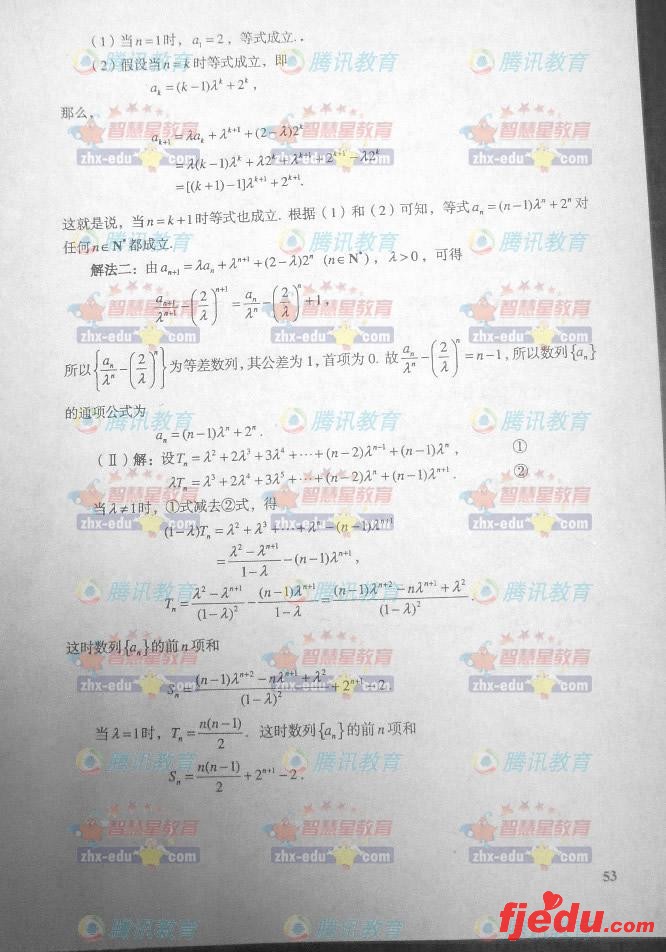 (1)当n=1时，a₁=2，等式成立．．
(2)假设当n=k时等式成立，即
aₖ=(k−1)λᵏ+2ᵏ，
那么，
aₖ₊₁=λaₖ+λᵏ⁺¹+(2−λ)2ᵏ
=λ(k−1)λᵏ+λ2ᵏ+λᵏ⁺¹+2ᵏ⁺¹−λ2ᵏ
=[(k+1)−1]λᵏ⁺¹+2ᵏ⁺¹.
这就是说，当n=k+1时等式也成立. 根据（1）和（2）可知，等式aₙ=(n−1)λⁿ+2ⁿ对
任何n∈N*都成立.
解法二：由aₙ₊₁=λaₙ+λⁿ⁺¹+(2−λ)2ⁿ (n∈N*)，λ>0，可得
aₙ₊₁/λⁿ⁺¹−(2/λ)ⁿ⁺¹=aₙ/λⁿ−(2/λ)ⁿ+1，
所以{aₙ/λⁿ−(2/λ)ⁿ}为等差数列，其公差为1，首项为0. 故aₙ/λⁿ−(2/λ)ⁿ=n−1，所以数列{aₙ}
的通项公式为
aₙ=(n−1)λⁿ+2ⁿ.
(Ⅱ)解：设Tₙ=λ²+2λ³+3λ⁴+⋯+(n−2)λⁿ⁻¹+(n−1)λⁿ， ①
λTₙ=λ³+2λ⁴+3λ⁵+⋯+(n−2)λⁿ+(n−1)λⁿ⁺¹. ②
当λ≠1时，①式减去②式，得
(1−λ)Tₙ=λ²+λ³+⋯+λⁿ−(n−1)λⁿ⁺¹
=(λ²−λⁿ⁺¹)/(1−λ)−(n−1)λⁿ⁺¹，
Tₙ=(λ²−λⁿ⁺¹)/(1−λ)²−(n−1)λⁿ⁺¹/(1−λ)=((n−1)λⁿ⁺²−nλⁿ⁺¹+λ²)/(1−λ)².
这时数列{aₙ}的前n项和
Sₙ=((n−1)λⁿ⁺²−nλⁿ⁺¹+λ²)/(1−λ)²+2ⁿ⁺¹−2.
当λ=1时，Tₙ=n(n−1)/2. 这时数列{aₙ}的前n项和
Sₙ=n(n−1)/2+2ⁿ⁺¹−2.
53
腾讯教育
智慧星教育
zhx-edu com
fjedu.com